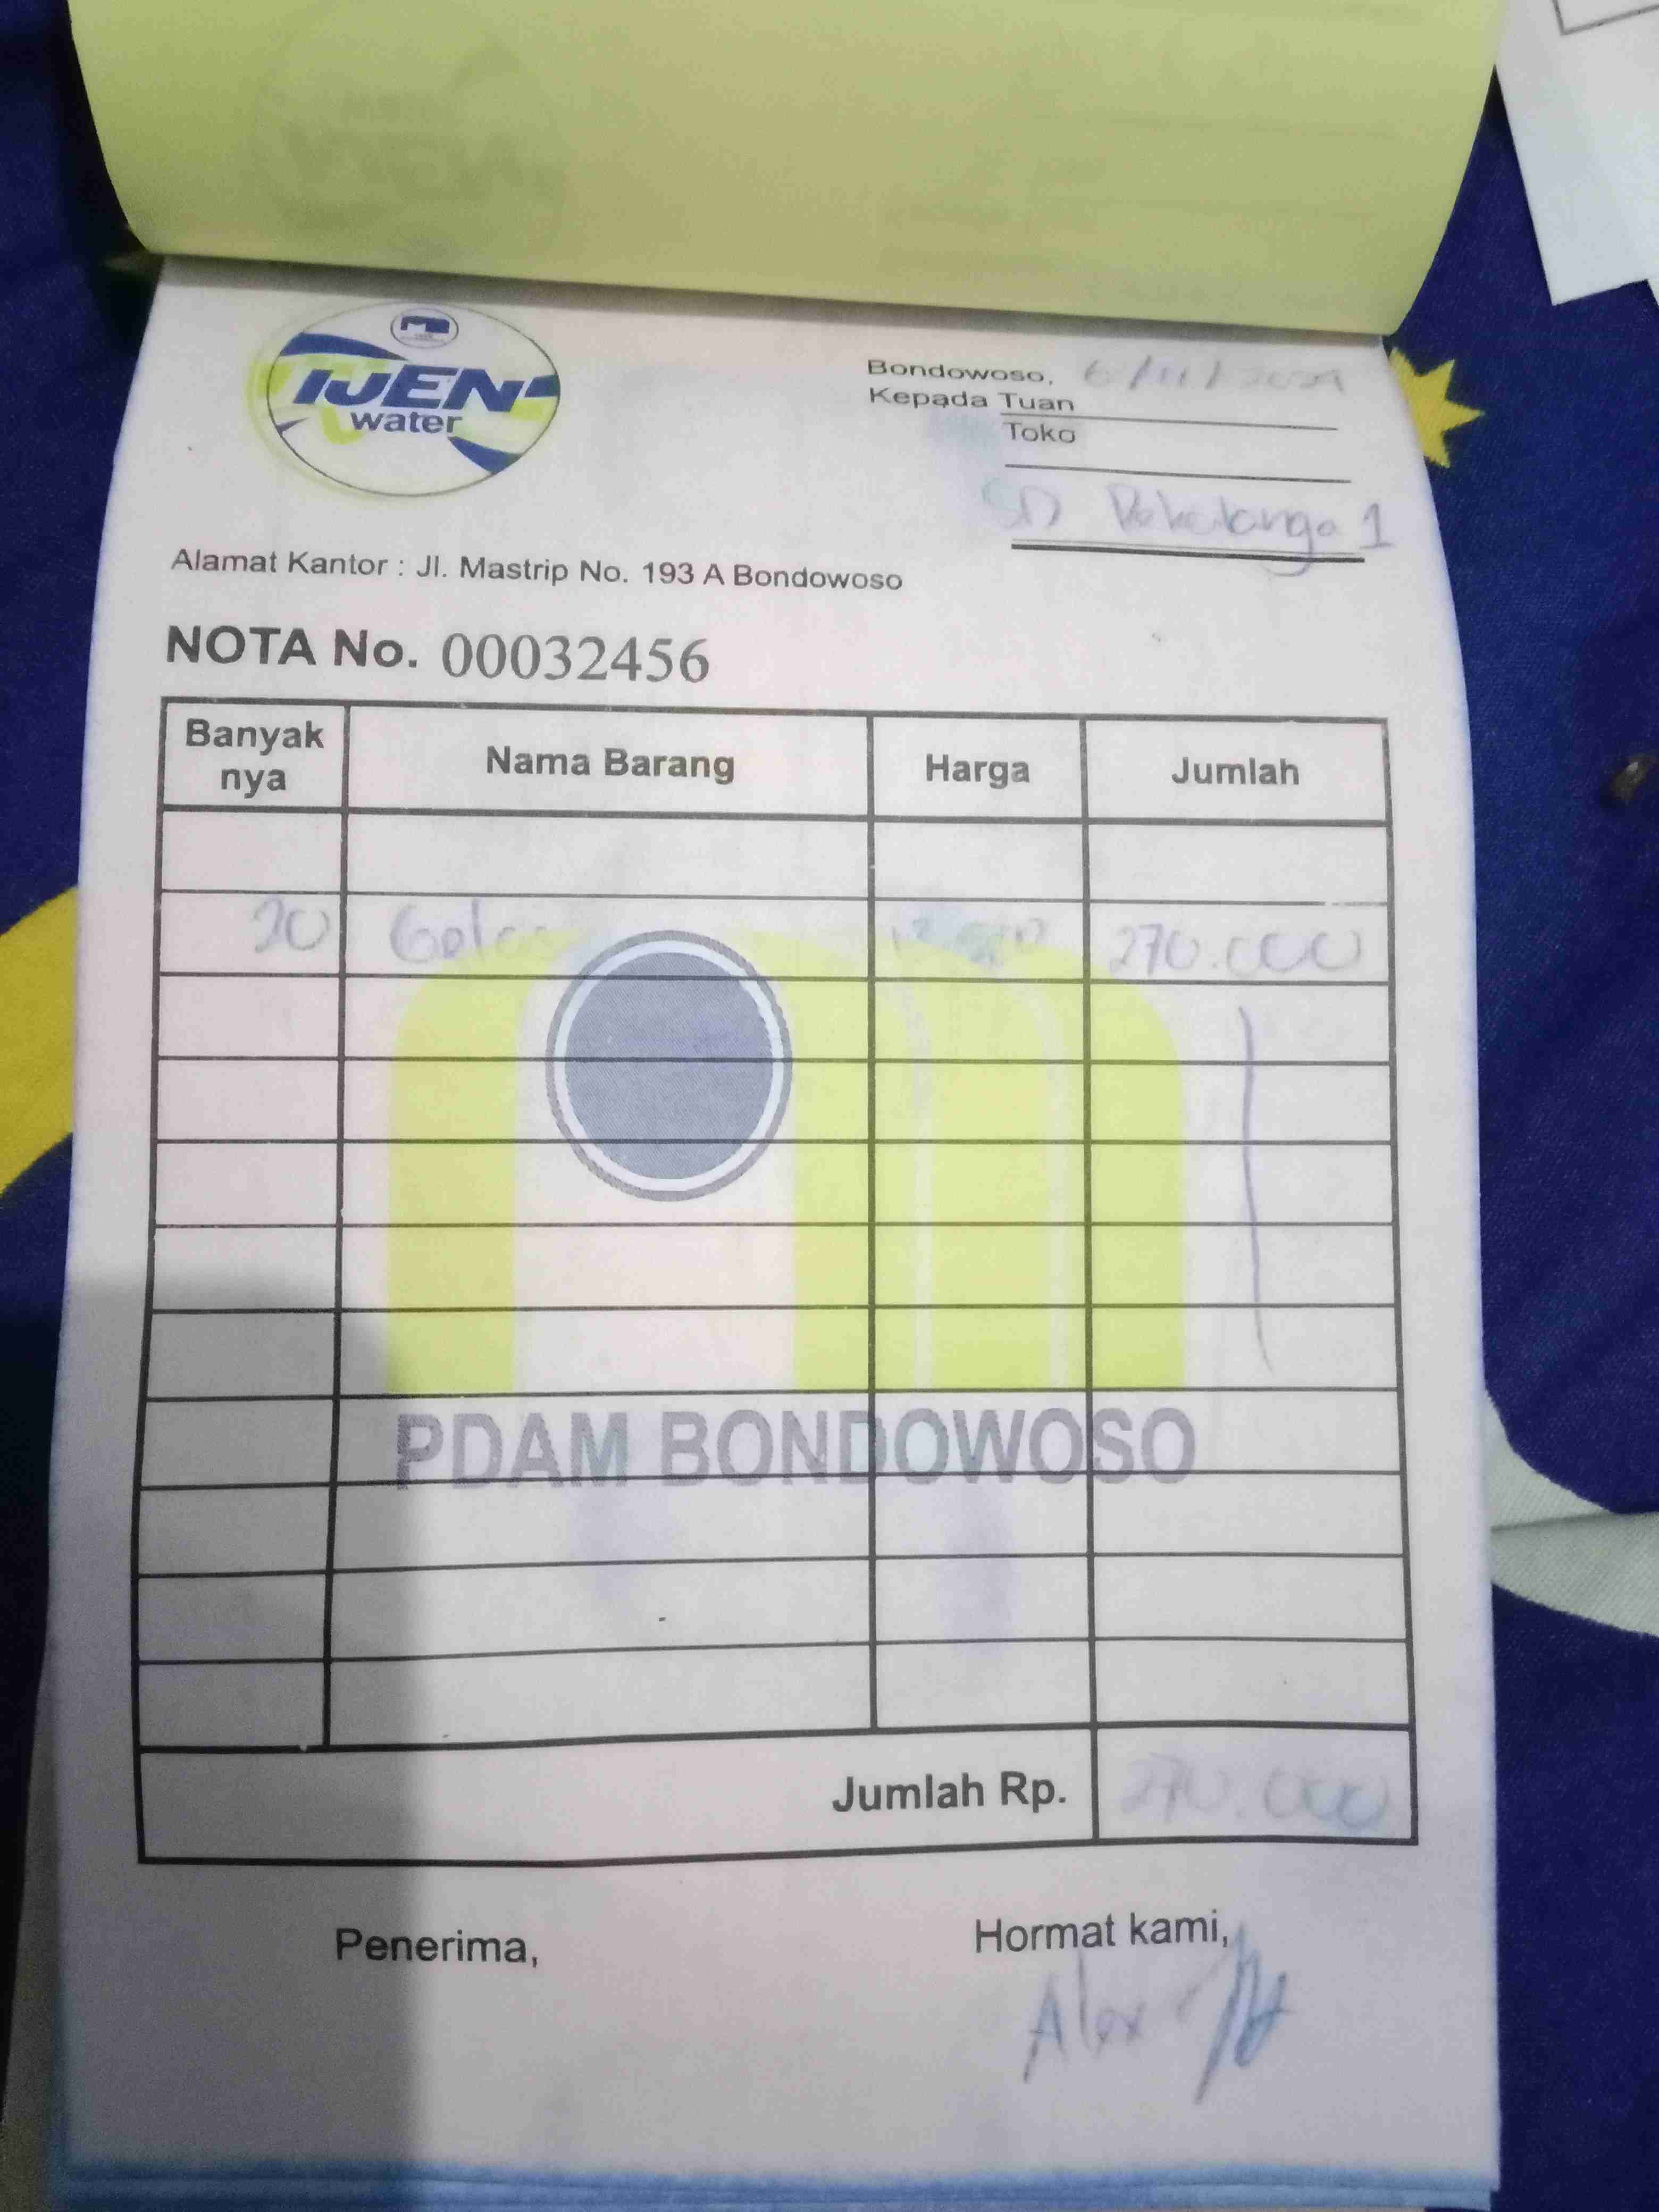 IJEN
water
Bondowoso, 6/11/2021
Kepada Tuan
Toko
SD Pekalangan 1
Alamat Kantor : Jl. Mastrip No. 193 A Bondowoso
NOTA No. 00032456
Banyak nya Nama Barang Harga Jumlah
20 Gelas 270.000
PDAM BONDOWOSO
Jumlah Rp. 270.000
Penerima, Hormat kami,
Alex